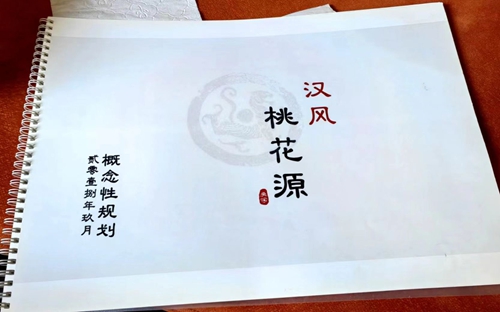 汉风
桃花源
概念性规划
贰零壹捌年玖月